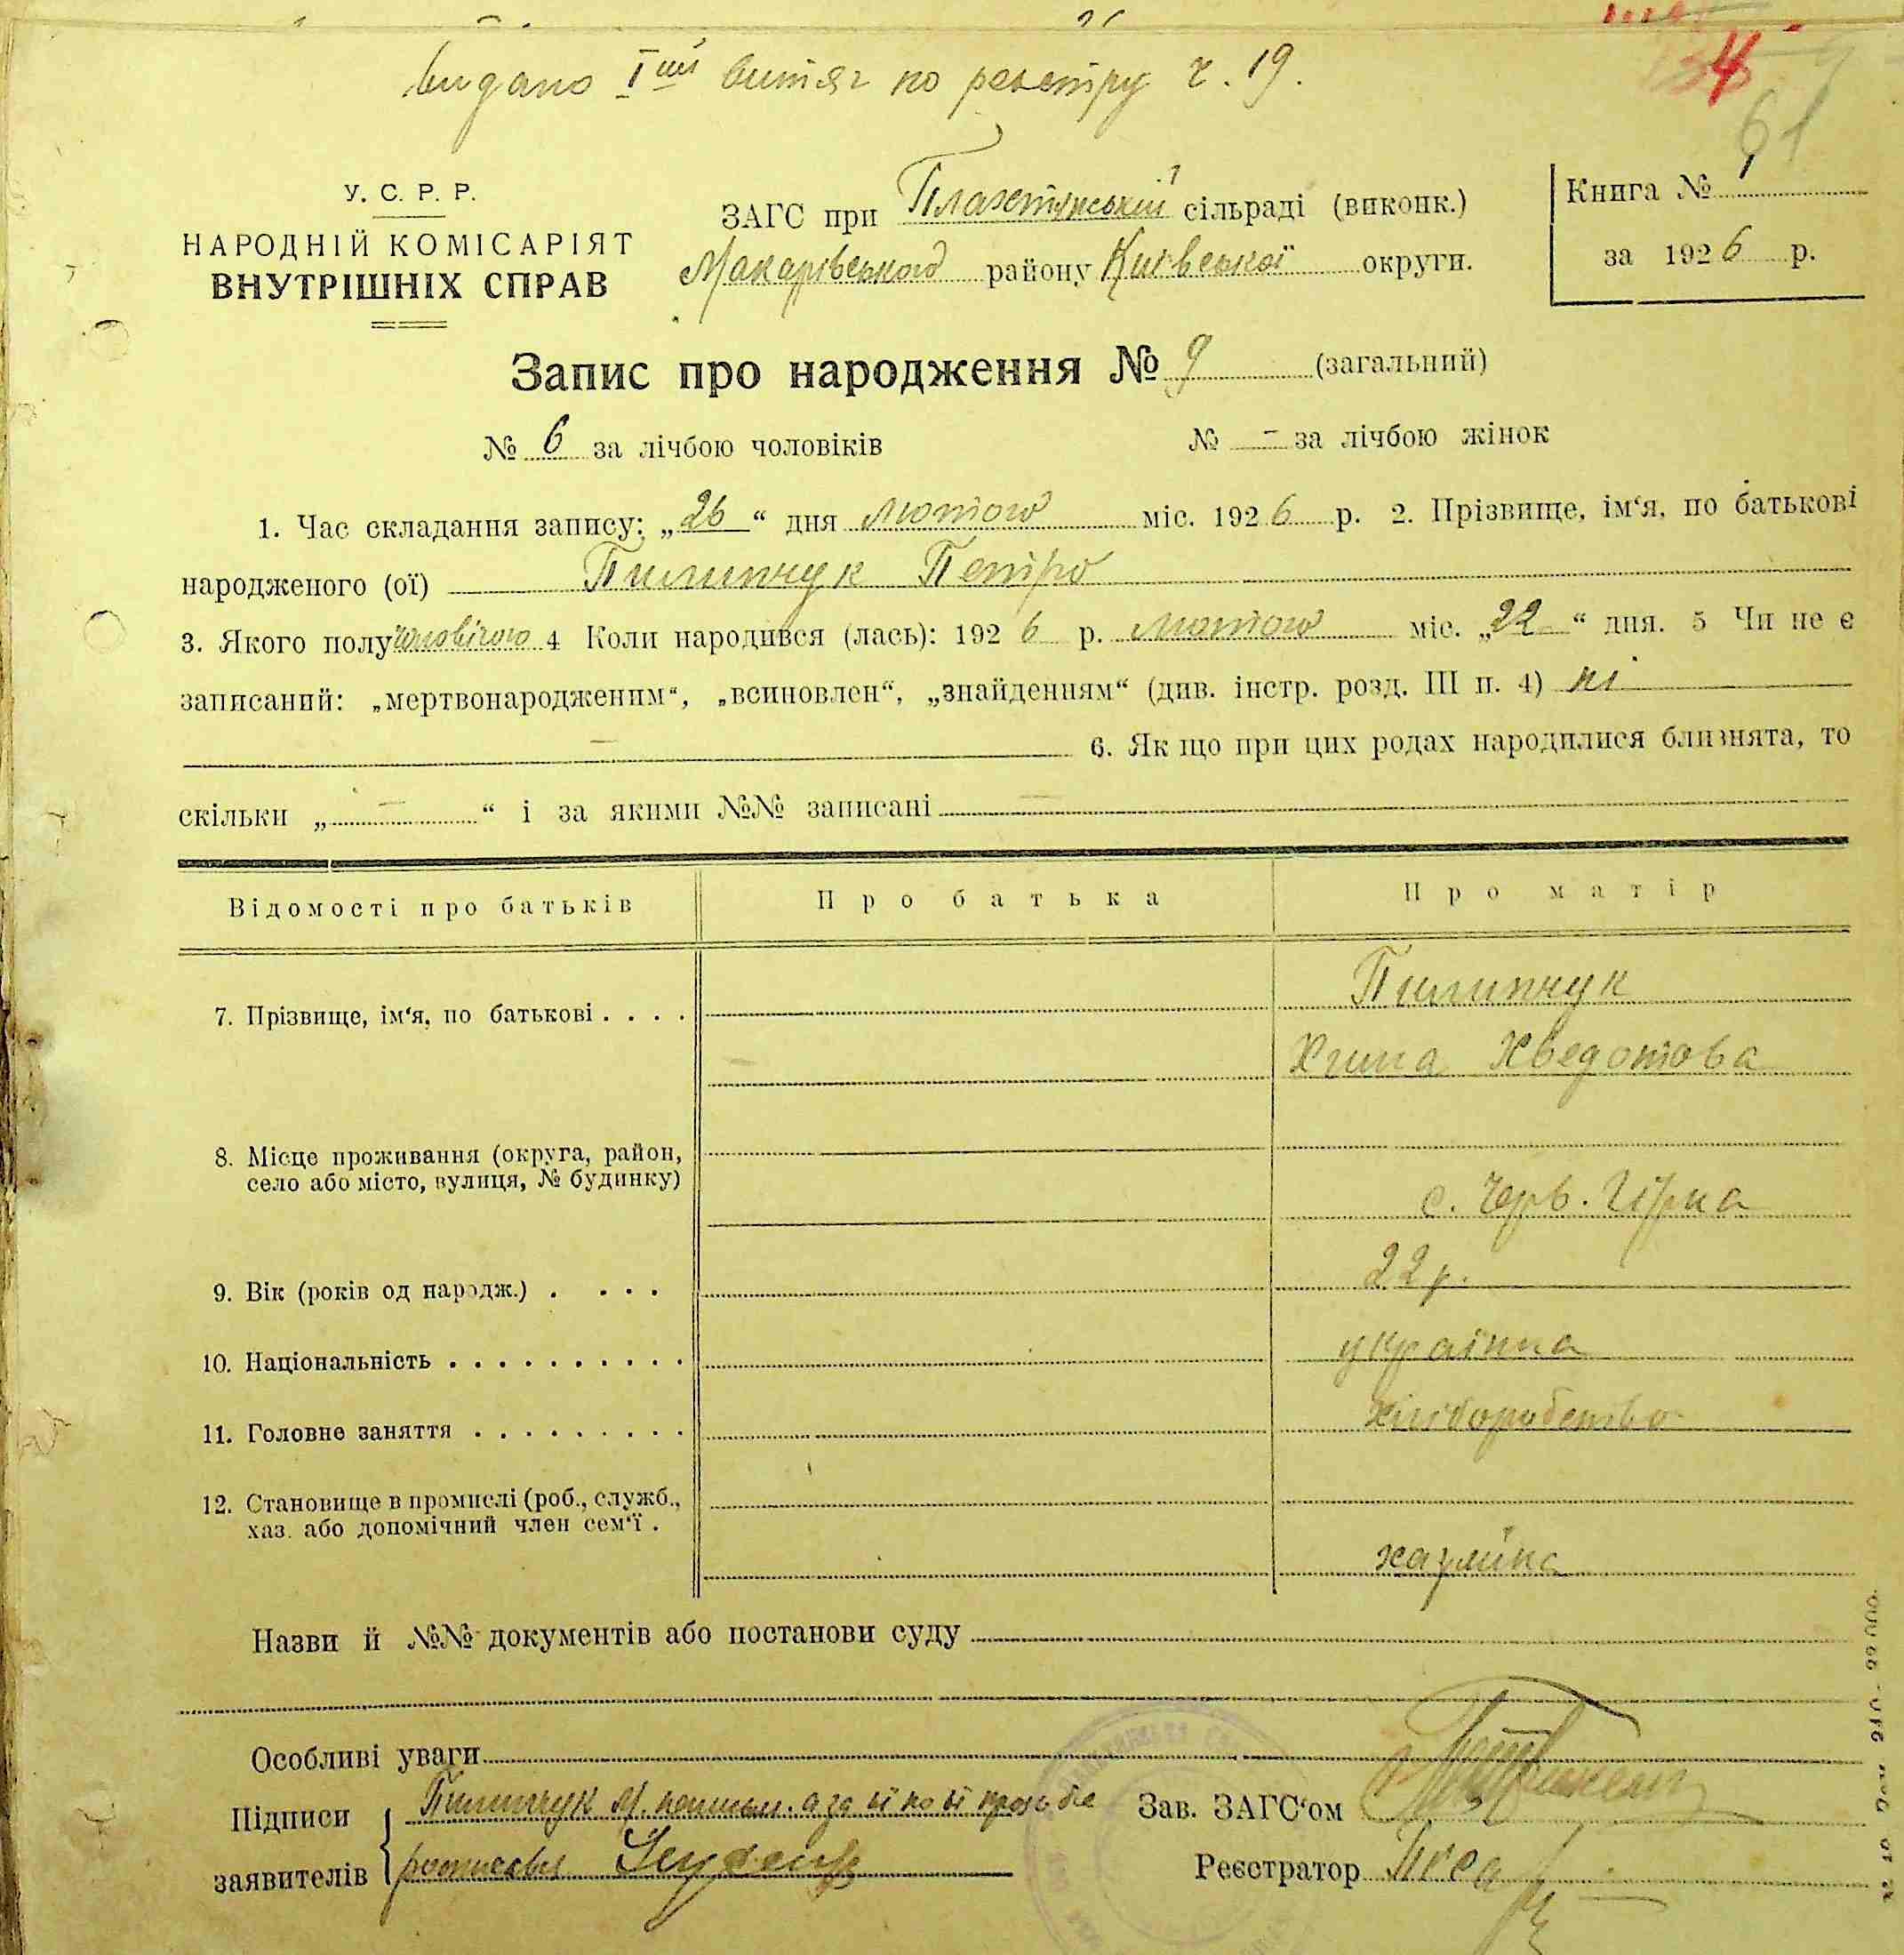 видано Iший витяг по реєстру ч. 19.
4
61
У. С. Р. Р.
НАРОДНІЙ КОМІСАРІЯТ
ВНУТРІШНІХ СПРАВ
ЗАГС при Плахтянській сільраді (виконк.)
Макарівського району Київської округи.
Книга № 1
за 1926 р.
Запис про народження № 9 (загальний)
№ 6 за лічбою чоловіків № - за лічбою жінок
1. Час складання запису: „26“ дня лютого міс. 1926 р. 2. Прізвище, ім‘я, по батькові
народженого (ої) Пилипчук Петро
3. Якого полу чоловічого 4 Коли народився (лась): 1926 р. лютого міс. „22“ дня. 5 Чи не є
записаний: „мертвонародженим“, „всиновлен“, „знайденням“ (див. інстр. розд. III п. 4) ні
— 6. Як що при цих родах народилися близнята, то
скільки „—“ і за якими №№ записані —
Відомості про батьків Про батька Про матір
7. Прізвище, ім‘я, по батькові . . . . Пилипчук
Хведотова
8. Місце проживання (округа, район,
село або місто, вулиця, № будинку) с. Черв. Гірка
9. Вік (років од народж.) . . . . 22 р.
10. Національність . . . . . . . . . . українка
11. Головне заняття . . . . . . . . . хліборобство
12. Становище в промислі (роб., служб.,
хаз. або допомічний член сем‘ї .
хазяйка
Назви й №№ документів або постанови суду
Особливі уваги
Підписи Пилипчук неписьм. а за її по її прозьбе
заявителів росписався
Зав. ЗАГС‘ом
Реєстратор